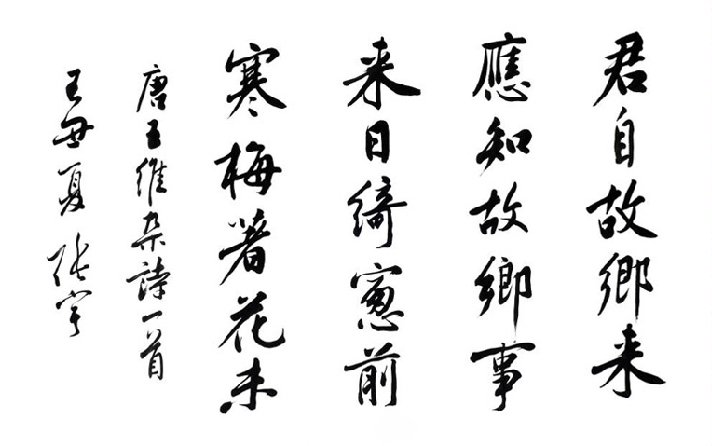 君自故鄉来
應知故鄉事
来日綺窻前
寒梅著花未
唐王維杂詩一首
丑夏